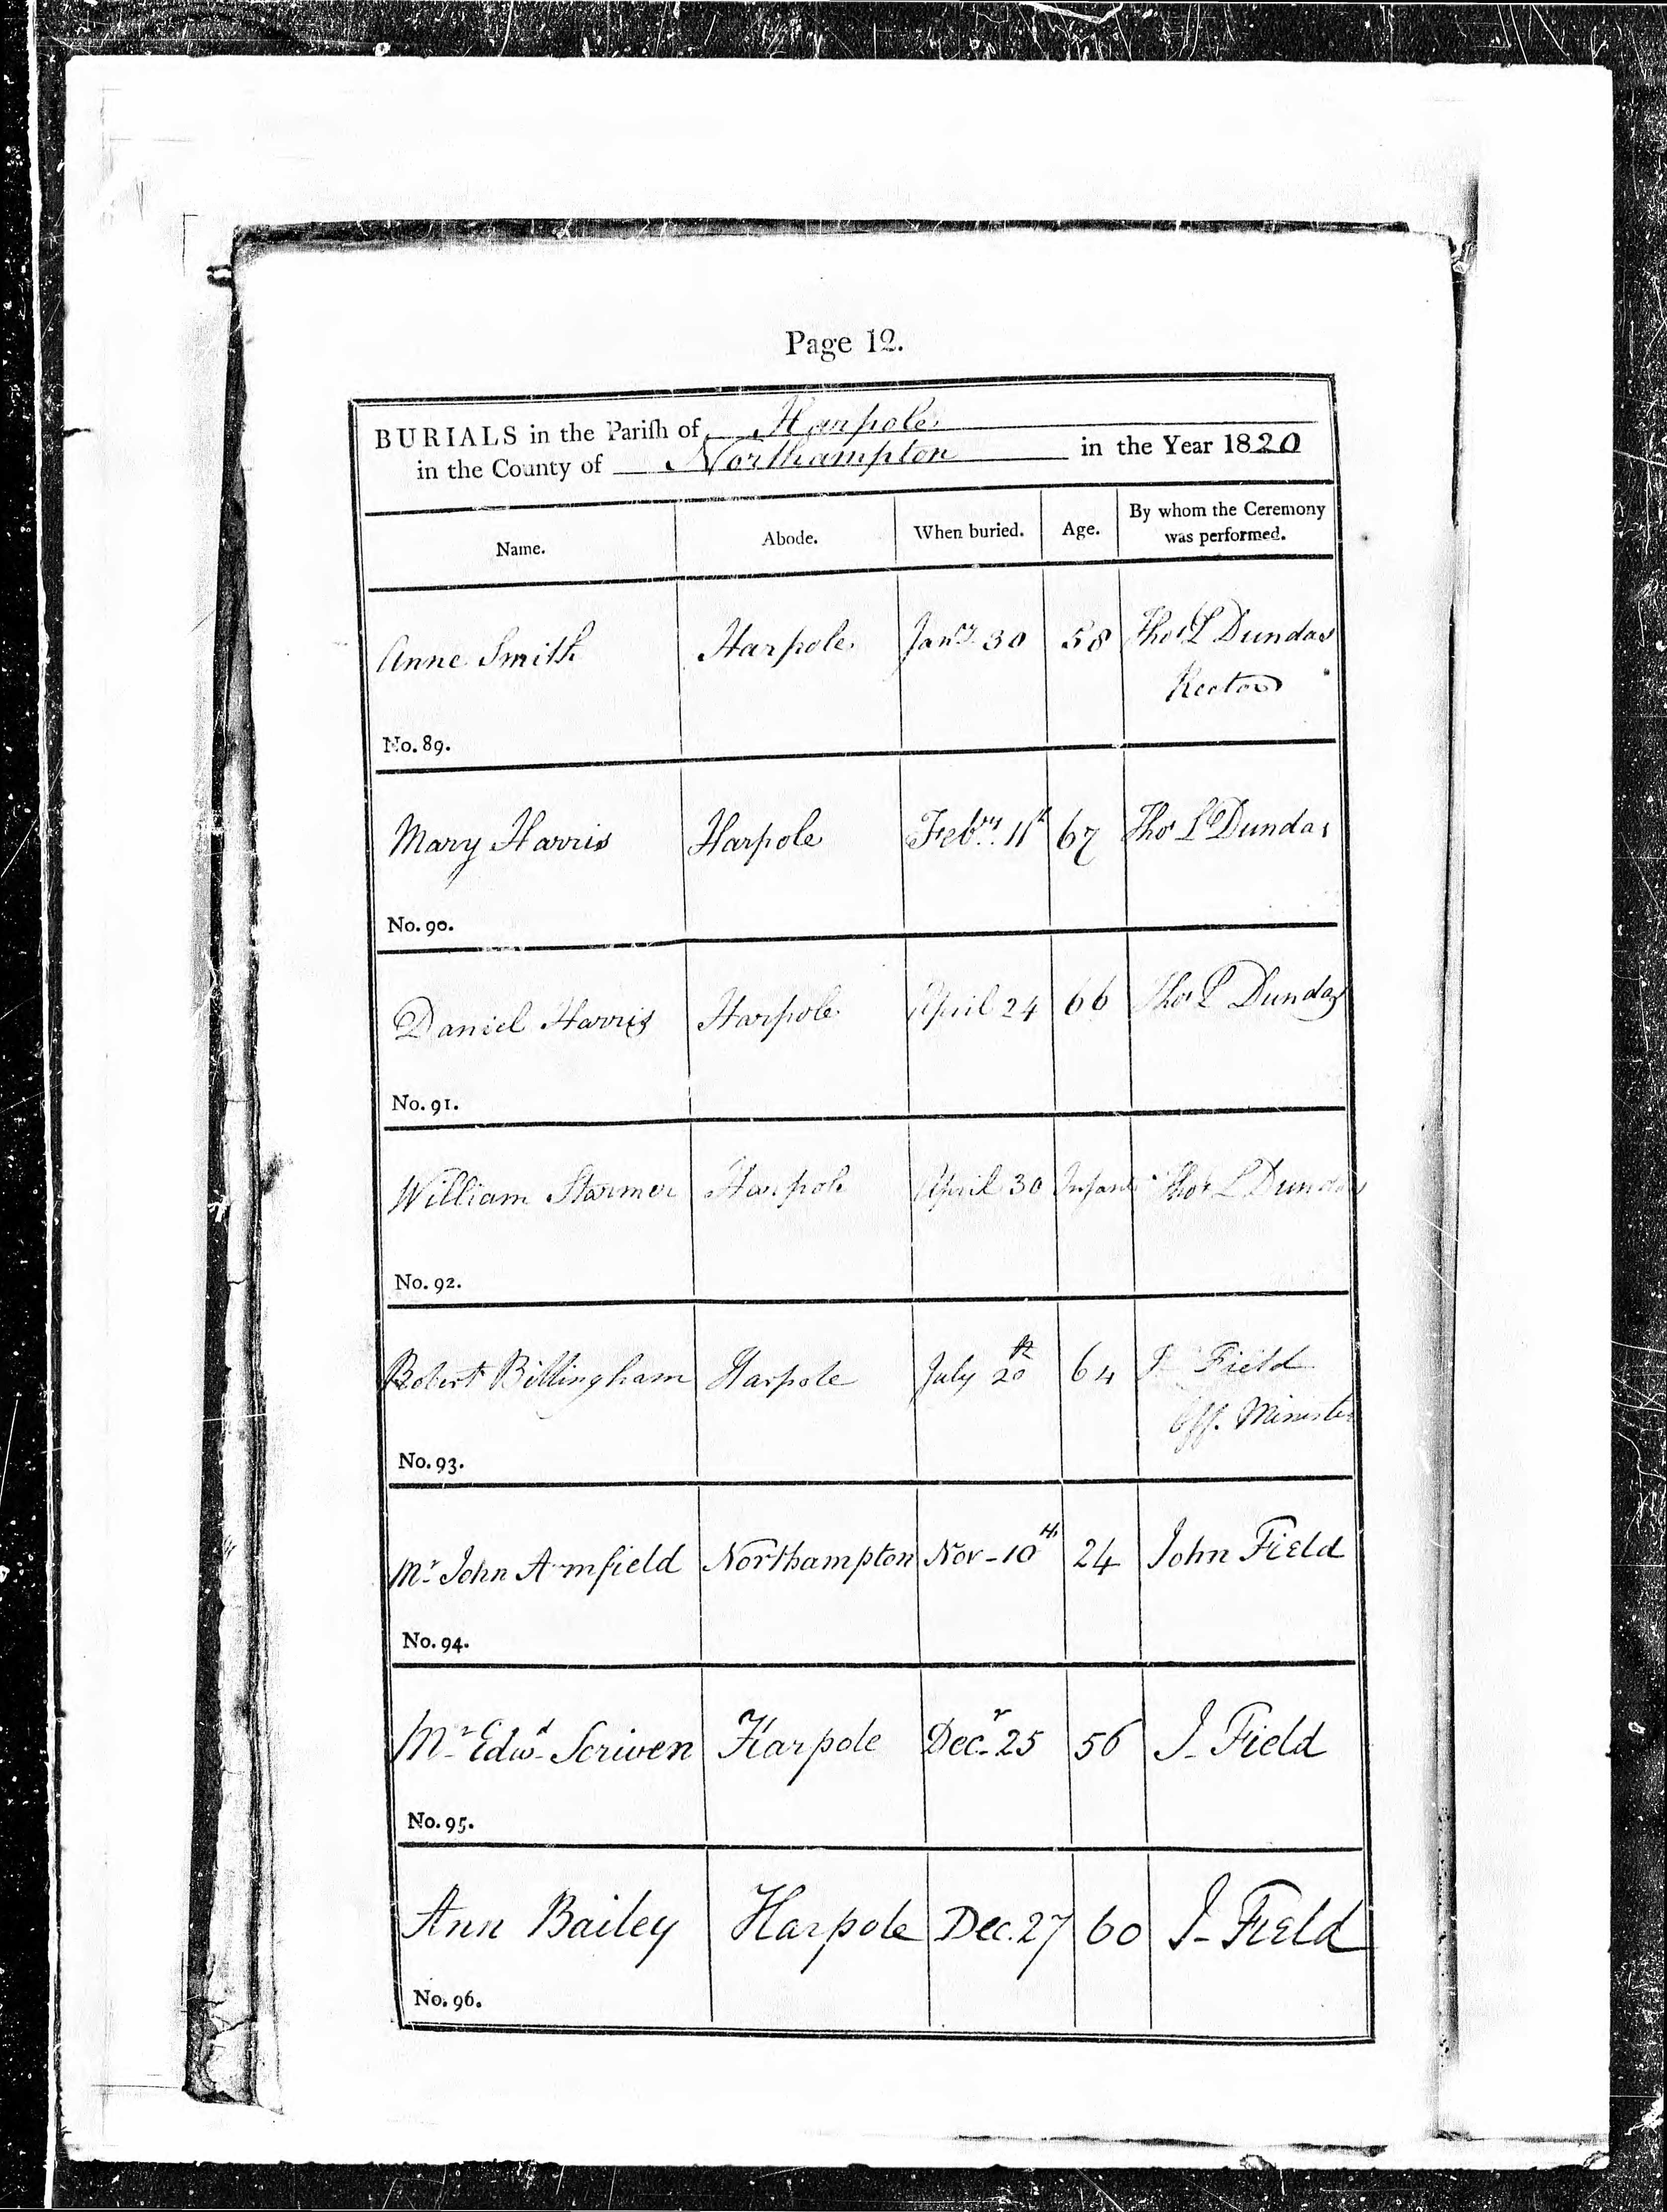 Page 12.
BURIALS in the Parish of Harpole
in the County of Northampton in the Year 1820
Name. Abode. When buried. Age. By whom the Ceremony was performed.
Anne Smith Harpole Janry 30 58 Thos L Dundas
Rector
No. 89.
Mary Harris Harpole Febry 11th 67 Thos L Dundas
No. 90.
Daniel Harris Harpole April 24 66 Thos L Dundas
No. 91.
William Starmer Harpole April 30 Infant Thos L Dundas
No. 92.
Robert Billingham Harpole July 20th 64 J Field
Off. Minister
No. 93.
Mr John Armfield Northampton Nov-10th 24 John Field
No. 94.
Mr Edwd Scriven Harpole Decr 25 56 J- Field
No. 95.
Ann Bailey Harpole Dec. 27 60 J- Field
No. 96.